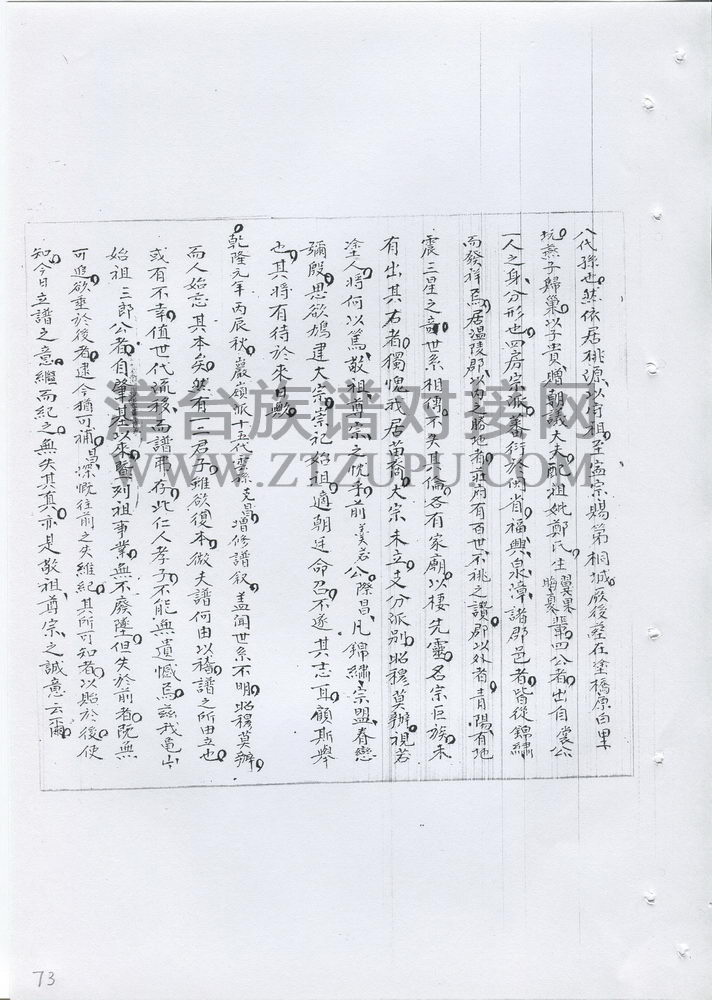 八代孫也然依居桃源以守祖至宋宗賜第桐城厥後塟在塗橋原百里
坑燕子歸巢以子貴贈朝議大夫配祖妣鄭氏生翼果 輩四公者出自宏公
一人之身分形也四房宗派蕃衍於閩省福興泉漳諸郡邑者皆從錦繡
而發祥焉居温陵郡以内之勝地者 有百世不祧之讚郡以外者青陽有地
震三星之竒世系相傳不失其倫各有家廟以棲先靈名宗巨族未
有出其右者獨愧我居苗裔大宗未立支分派别昭穆莫辦視若
塗人將何以篤敬祖尊宗之忱乎前 公際昌凡錦繡宗盟眷戀
彌殷思欲鳩建大宗崇祀始祖適朝廷命召不遂其志耳顧斯舉
也其將有待於來日歟
乾隆元年丙辰秋巖嶺派十五代雲孫克昌增修譜叙盖聞世系不明昭穆莫辦
而人始忘其本矣然有一二君子雖欲復本做夫譜何由以稽譜之所由立也
或有不幸值世代流移而譜弗存此仁人孝子不能無遺憾焉兹我龜山
始祖三郎公者自肇基以來歷列祖事業無不廢墜但失於前者既無
可追欲垂於後者逮今猶可補昌深慨往前之失維紀其所可知者以始於後使
知今日立譜之意繼而紀之無失其真亦是敬祖尊宗之誠意云爾
津台族谱对接网
WWW.ZTZUPU.COM
73